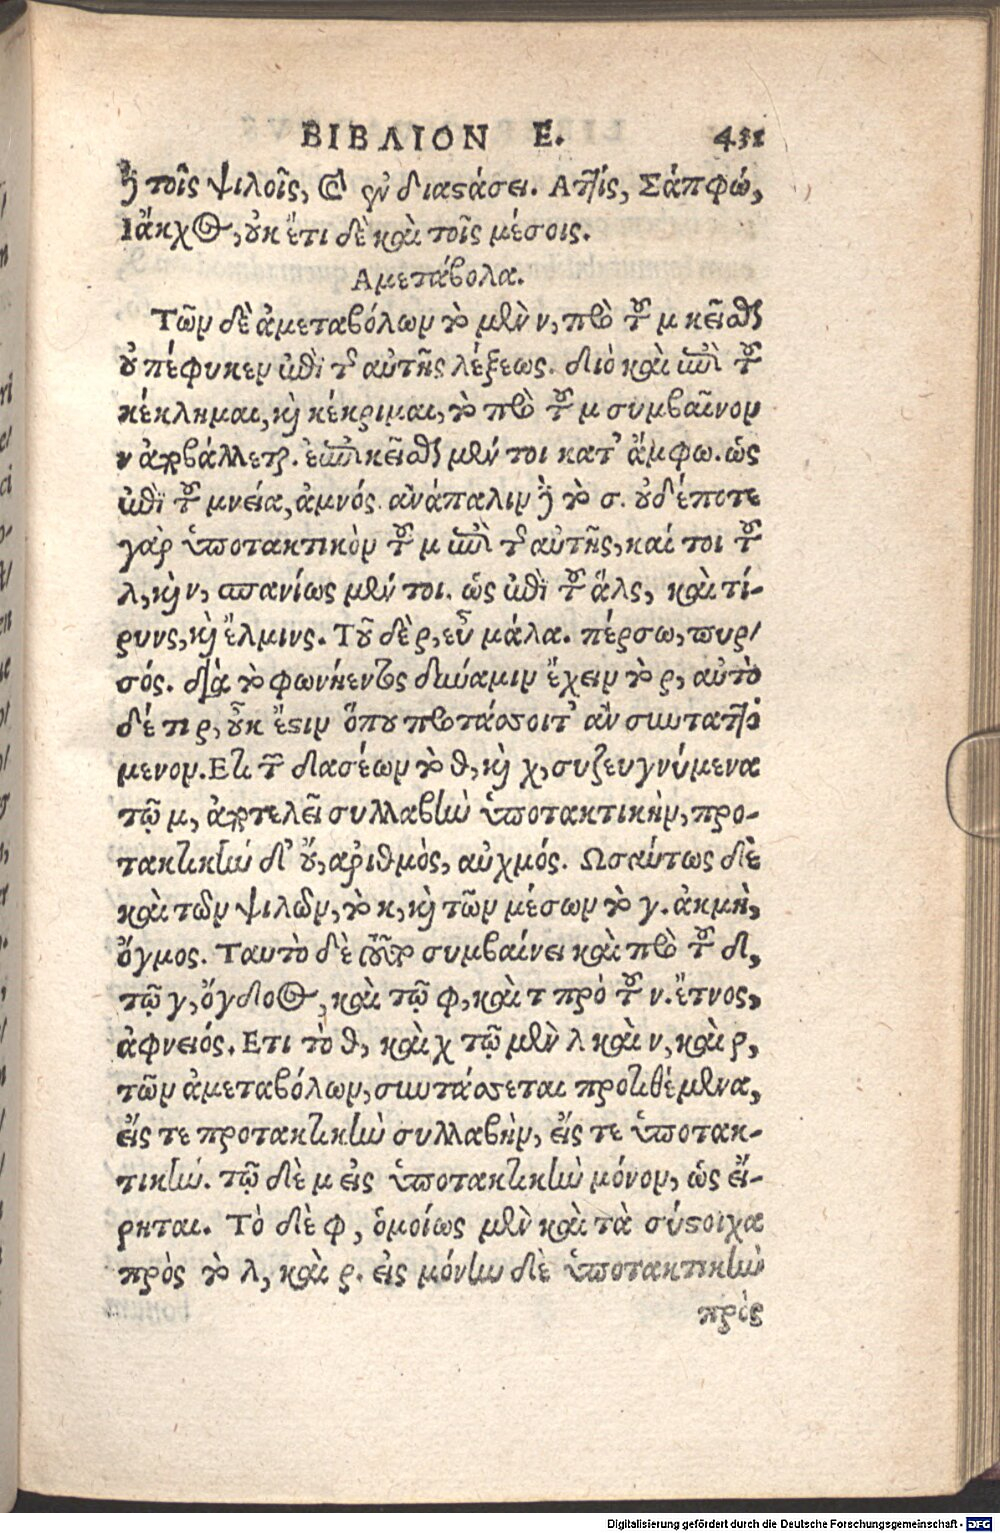 ΒΙΒΛΙΟΝ Ε. 431
δὲ τοῖς ψιλοῖς, καὶ ἐν διαστάσει. Ατθίς, Σάπφώ,
Ιάκχος, οὐκ ἔτι δὲ καὶ τοῖς μέσοις.
Αμετάβολα.
Τῶν δὲ ἀμεταβόλων τὸ μὲν ν, πρὸ τοῦ μ κεῖσθαι
οὐ πέφυκεν ἐπὶ τῆς αὐτῆς λέξεως. διὸ καὶ ἐπὶ τοῦ
κέκλημαι, καὶ κέκριμαι, τὸ πρὸ τοῦ μ συμβαῖνον
ν ἀποβάλλεται. ἐπικεῖσθαι μέν τοι κατ' ἄμφω. ὡς
ἐπὶ τοῦ μνεία, ἀμνός. ἀνάπαλιν δὲ τὸ σ. οὐδέποτε
γὰρ ὑποτακτικὸν τοῦ μ ἐπὶ τῆς αὐτῆς, καί τοι τοῦ
λ, καὶ ν, σπανίως μέν τοι. ὡς ἐπὶ τοῦ ἅλς, καὶ τί-
ρυνς, καὶ ἕλμινς. Τοῦ δὲ ρ, εὖ μάλα. πέρσω, πυρ-
σός. διὰ τὸ φωνήεντος δύναμιν ἔχειν τὸ ρ, αὐτὸ
δέ τι ρ, οὐκ ἔστιν ὅπου προτάσσοιτ' ἂν συντατ ό
μενον. Ετι τῶν δασέων τὸ θ, καὶ χ, συζευγνύμενα
τῷ μ, ἀποτελεῖ συλλαβὴν ὑποτακτικὴν, προ-
τακτικὴν δ' οὔ, ἀριθμὸς, αὐχμός. Ωσαύτως δὲ
καὶ τῶν ψιλῶν, τὸ κ, καὶ τῶν μέσων τὸ γ. ἀκμὴ,
ὄγμος. Ταυτὸ δὲ τοῦτο συμβαίνει καὶ πρὸ τοῦ δ,
τῷ γ, ὄγδοος, καὶ τῷ φ, καὶ τ πρὸ τοῦ ν. ἔτνος,
ἀφνειός. Ετι τὸ θ, καὶ χ τῷ μὲν λ καὶ ν, καὶ ρ,
τῶν ἀμεταβόλων, συντάσσεται προτιθέμενα,
εἴς τε προτακτικὴν συλλαβὴν, εἴς τε ὑποτακ-
τικήν. τῷ δὲ μ εἰς ὑποτακτικὴν μόνον, ὡς εἴ-
ρηται. Τὸ δὲ φ, ὁμοίως μὲν καὶ τὰ σύστοιχα
πρὸς τὸ λ, καὶ ρ. εἰς μόνην δὲ ὑποτακτικὴν
πρὸς
Digitalisierung gefördert durch die Deutsche Forschungsgemeinschaft - DFG